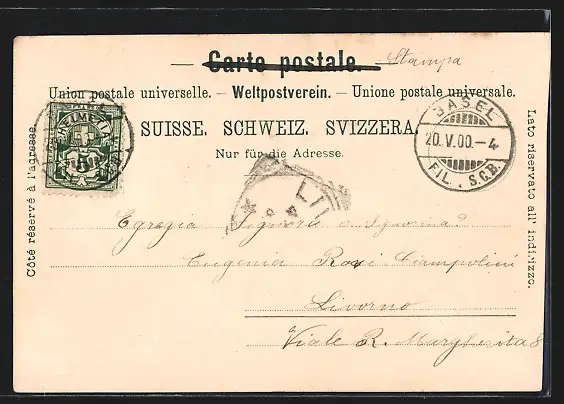 Carte postale. Stampa
Union postale universelle. – Weltpostverein. – Unione postale universale.
SUISSE. SCHWEIZ. SVIZZERA.
Nur für die Adresse.
Côté réservé à l'adresse.
Lato riservato all' indirizzo.
BASEL
20.V.00.–4
FIL. S.C.B.
LI
Egregia Signora e Signorina
Eugenia Rossi Ciampolini
Livorno
Viale R. Margherita 8